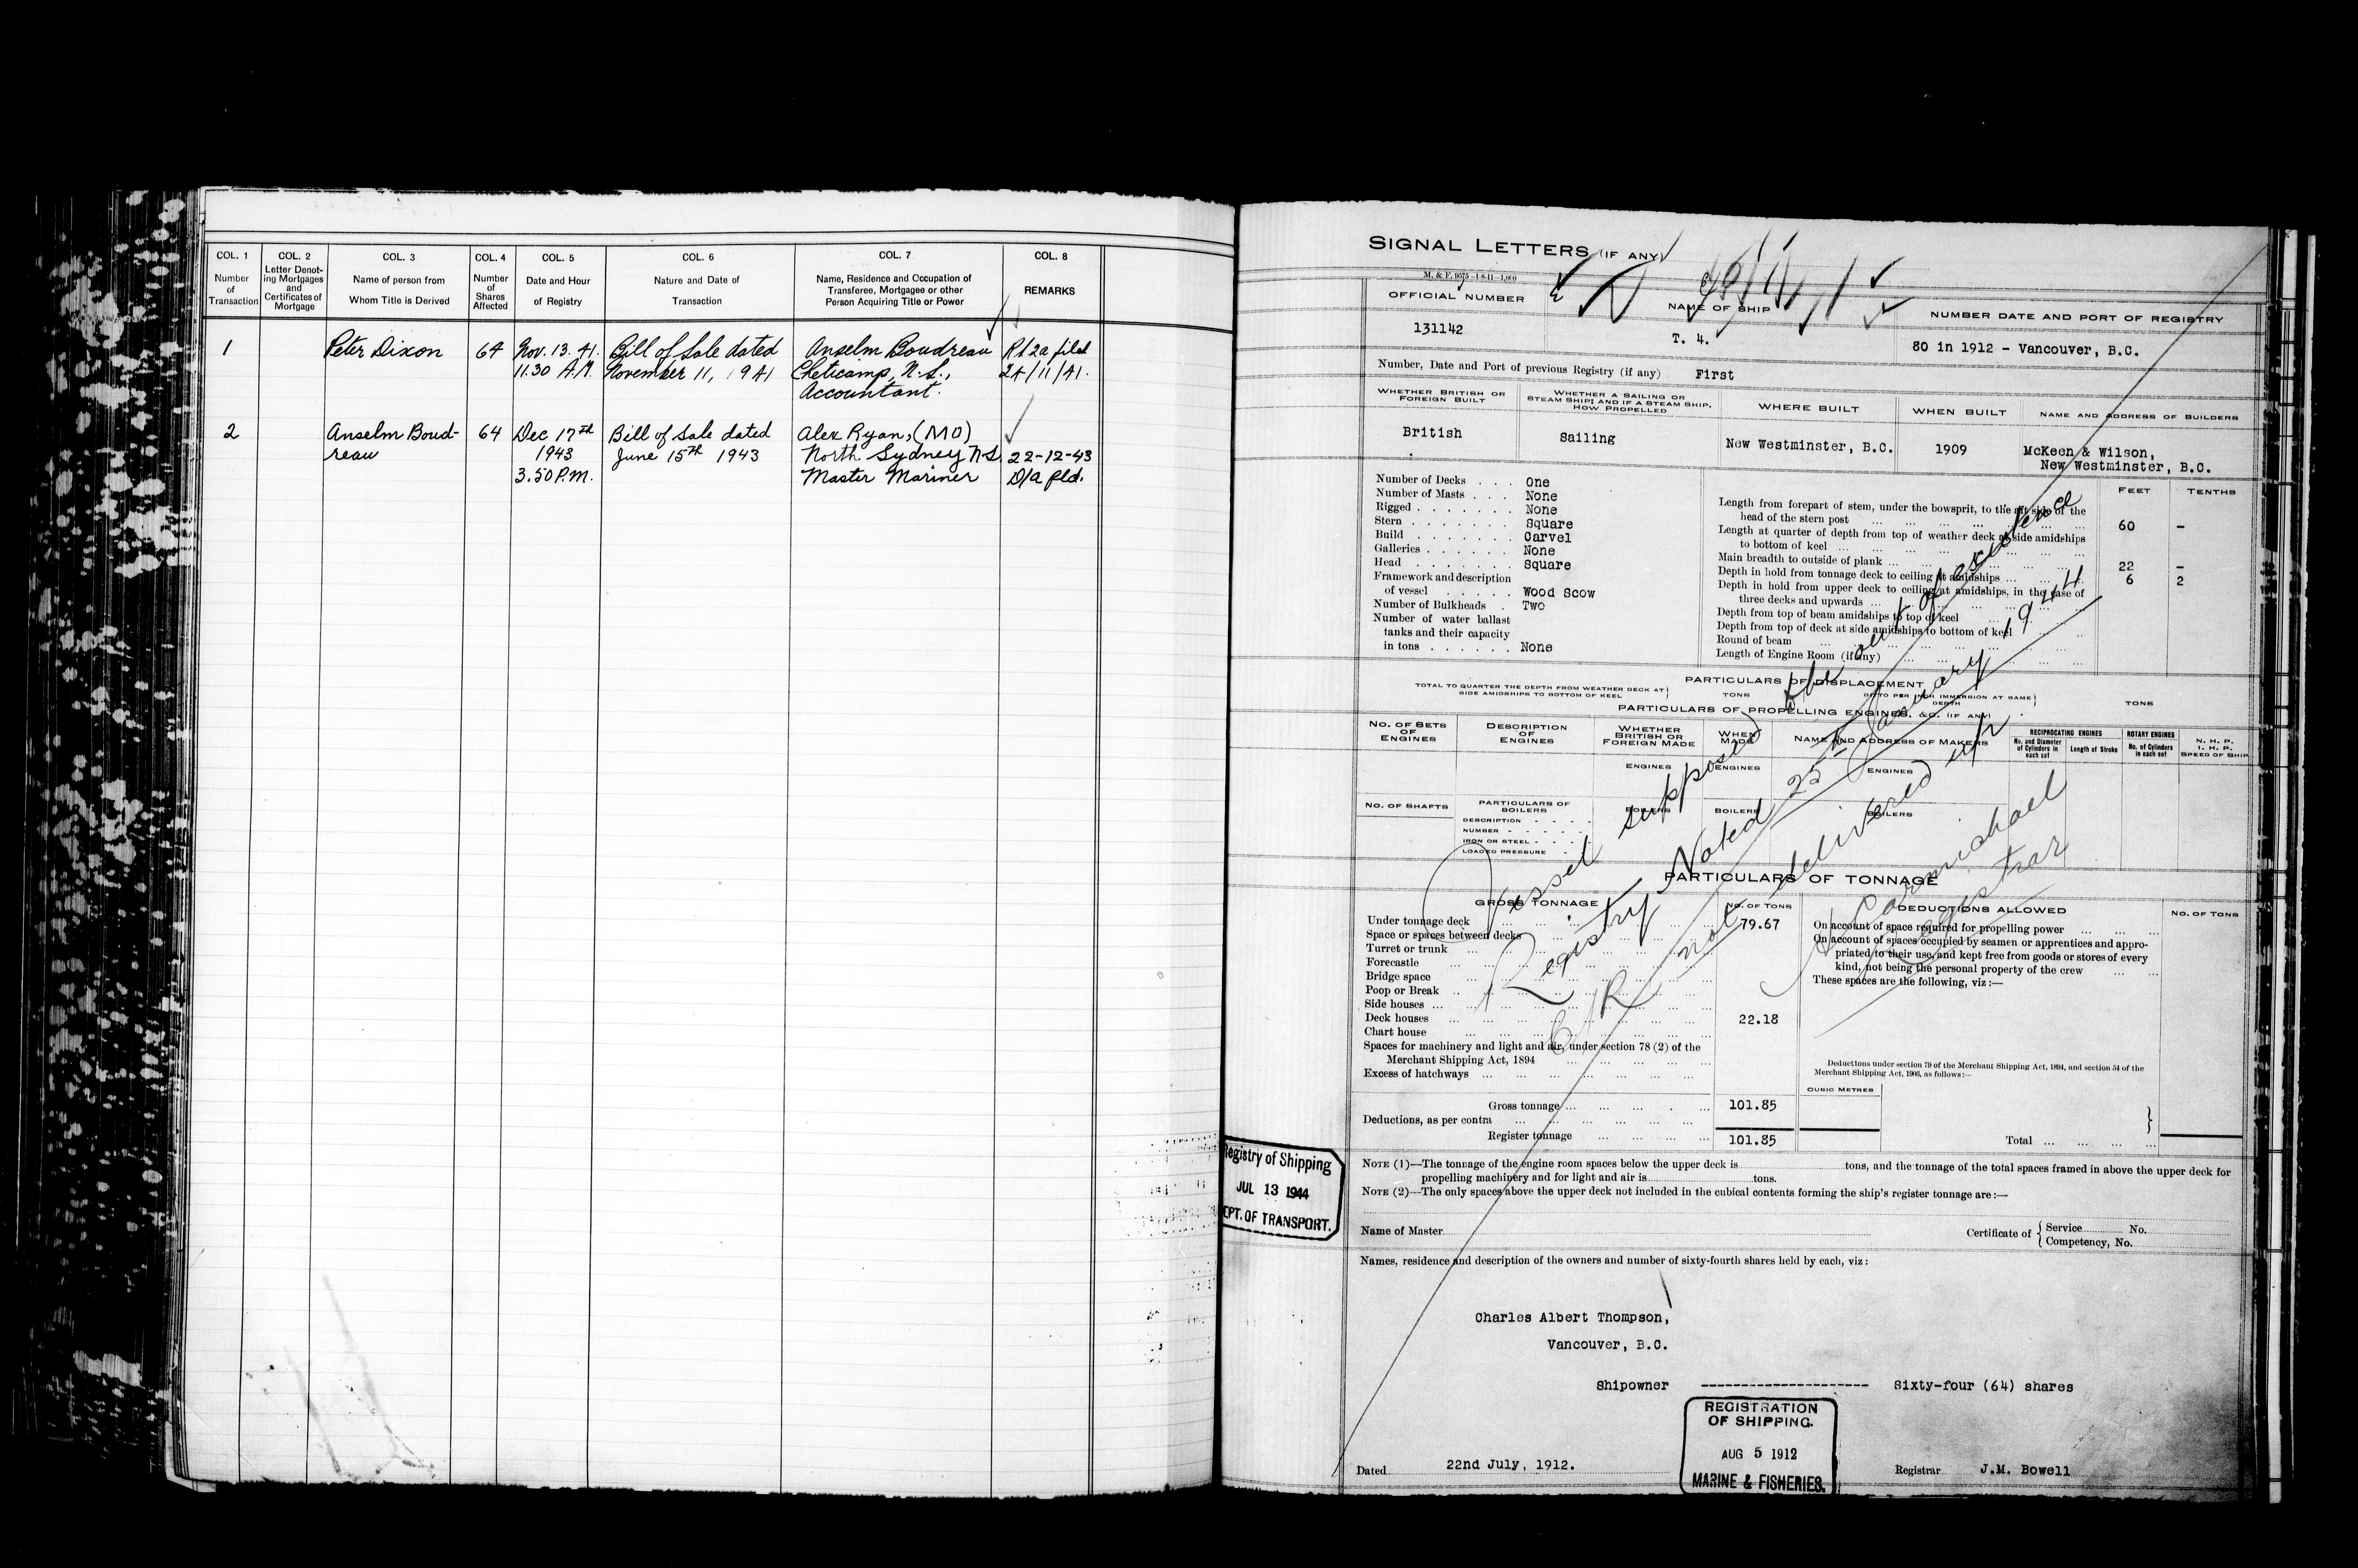 COL. 1 COL. 2 COL. 3 COL. 4 COL. 5 COL. 6 COL. 7 COL. 8
Number of Transaction
Letter Denoting Mortgages and Certificates of Mortgage
Name of person from Whom Title is Derived
Number of Shares Affected
Date and Hour of Registry
Nature and Date of Transaction
Name, Residence and Occupation of Transferee, Mortgagee or other Person Acquiring Title or Power
REMARKS
1 Peter Dixon 64 Nov. 13. 41. Bill of Sale dated Anselm Boudreau
11.30 A.M. November 11, 1941 Cheticamp, N.S., 24/11/41.
Accountant.
2 Anselm Boud- 64 Dec 17th Bill of Sale dated Alex Ryan, (MO)
reau 1943 June 15th 1943 North Sydney NS. 22-12-43
3.50 P.M. Master Mariner D/a fld.
SIGNAL LETTERS (IF ANY)
M. & F. 9575-1-8-11-1,000
OFFICIAL NUMBER NAME OF SHIP NUMBER DATE AND PORT OF REGISTRY
131142 T. 4. 80 in 1912 - Vancouver, B.C.
Number, Date and Port of previous Registry (if any) First
WHETHER BRITISH OR FOREIGN BUILT
WHETHER A SAILING OR STEAM SHIP; AND IF A STEAM SHIP, HOW PROPELLED
WHERE BUILT WHEN BUILT NAME AND ADDRESS OF BUILDERS
British Sailing New Westminster, B.C. 1909 McKeen & Wilson,
New Westminster, B.C.
Number of Decks . . . One
Number of Masts . . . None
Rigged . . . . . . . None
Stern . . . . . . . Square
Build . . . . . . . Carvel
Galleries . . . . . . None
Head . . . . . . . Square
Framework and description
of vessel . . . . . Wood Scow
Number of Bulkheads . Two
Number of water ballast
tanks and their capacity
in tons . . . . . . None
FEET TENTHS
Length from forepart of stem, under the bowsprit, to the aft side of the
head of the stern post 60 -
Length at quarter of depth from top of weather deck at side amidships
to bottom of keel
Main breadth to outside of plank 22 -
Depth in hold from tonnage deck to ceiling at amidships 6 2
Depth in hold from upper deck to ceiling at amidships, in the case of
three decks and upwards
Depth from top of beam amidships to top of keel
Depth from top of deck at side amidships to bottom of keel
Round of beam
Length of Engine Room (if any)
PARTICULARS OF DISPLACEMENT
TOTAL TO QUARTER THE DEPTH FROM WEATHER DECK AT SIDE AMIDSHIPS TO BOTTOM OF KEEL TONS DITTO PER INCH IMMERSION AT SAME DEPTH TONS
PARTICULARS OF PROPELLING ENGINES, &C. (IF ANY)
NO. OF SETS OF ENGINES
DESCRIPTION OF ENGINES
WHETHER BRITISH OR FOREIGN MADE
WHEN MADE
NAME AND ADDRESS OF MAKERS
RECIPROCATING ENGINES
No. and Diameter of Cylinders in each set
Length of Stroke
ROTARY ENGINES
No. of Cylinders in each set
N. H. P.
I. H. P.
SPEED OF SHIP
ENGINES ENGINES ENGINES
NO. OF SHAFTS PARTICULARS OF BOILERS BOILERS BOILERS BOILERS
DESCRIPTION
NUMBER
IRON OR STEEL
LOADED PRESSURE
Vessel supposed to be out of existence
Registry Noted 22nd January 1944
C/R not delivered up
A Carmichael
Registrar
PARTICULARS OF TONNAGE
GROSS TONNAGE NO. OF TONS DEDUCTIONS ALLOWED NO. OF TONS
Under tonnage deck 79.67
Space or spaces between decks
Turret or trunk
Forecastle
Bridge space
Poop or Break
Side houses
Deck houses 22.18
Chart house
Spaces for machinery and light and air, under section 78 (2) of the
Merchant Shipping Act, 1894
Excess of hatchways
Gross tonnage 101.85
Deductions, as per contra
Register tonnage 101.85
On account of space required for propelling power
On account of spaces occupied by seamen or apprentices and appro-
priated to their use, and kept free from goods or stores of every
kind, not being the personal property of the crew
These spaces are the following, viz :—
Deductions under section 79 of the Merchant Shipping Act, 1894, and section 54 of the
Merchant Shipping Act, 1906, as follows:—
CUBIC METRES
Total
NOTE (1)—The tonnage of the engine room spaces below the upper deck is tons, and the tonnage of the total spaces framed in above the upper deck for
propelling machinery and for light and air is tons.
NOTE (2)—The only spaces above the upper deck not included in the cubical contents forming the ship's register tonnage are :—
Registry of Shipping
JUL 13 1944
DEPT. OF TRANSPORT.
Name of Master Certificate of { Service No.
Competency, No.
Names, residence and description of the owners and number of sixty-fourth shares held by each, viz :
Charles Albert Thompson,
Vancouver, B.C.
Shipowner -------------------- Sixty-four (64) shares
REGISTRATION
OF SHIPPING.
AUG 5 1912
MARINE & FISHERIES.
Dated 22nd July, 1912. Registrar J.M. Bowell